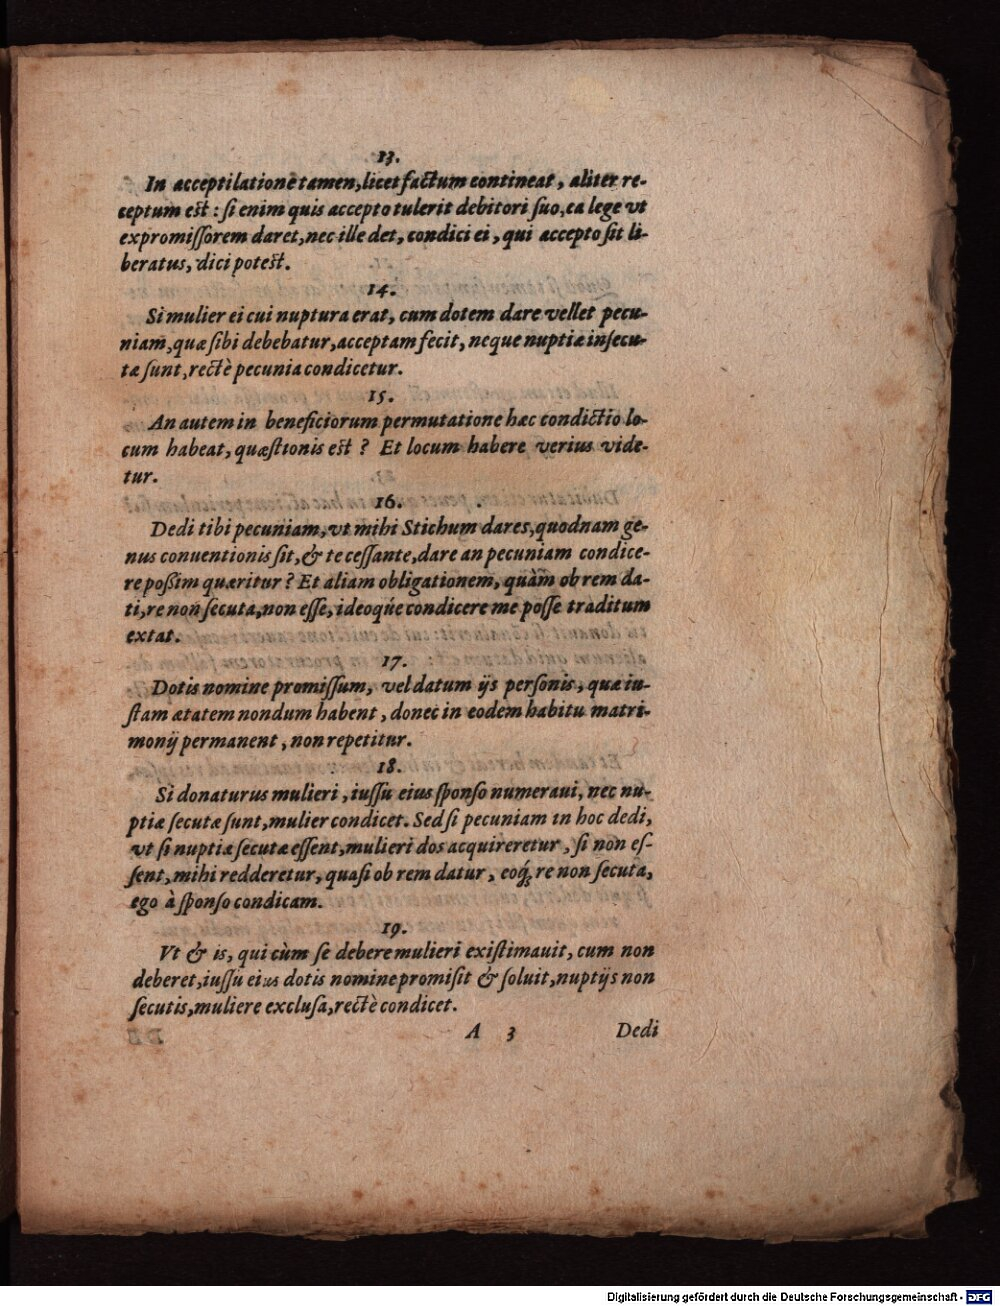 13.
In acceptilatione tamen, licet factum contineat, aliter re-
ceptum est: si enim quis accepto tulerit debitori suo, ea lege vt
expromissorem daret, nec ille det, condici ei, qui accepto sit li-
beratus, dici potest.
14.
Si mulier ei cui nuptura erat, cum dotem dare vellet pecu-
niam, quæ sibi debebatur, acceptam fecit, neque nuptiæ insecu-
tæ sunt, rectè pecunia condicetur.
15.
An autem in beneficiorum permutatione hæc condictio lo-
cum habeat, quæstionis est? Et locum habere verius vide-
tur.
16.
Dedi tibi pecuniam, vt mihi Stichum dares, quodnam ge-
nus conuentionis sit, & te cessante, dare an pecuniam condice-
re possim quæritur? Et aliam obligationem, quàm ob rem da-
ti, re non secuta, non esse, ideoqúe condicere me posse traditum
extat.
17.
Dotis nomine promissum, vel datum ijs personis, quæ iu-
stam ætatem nondum habent, donec in eodem habitu matri-
monij permanent, non repetitur.
18.
Si donaturus mulieri, iussu eius sponso numeraui, nec nu-
ptiæ secutæ sunt, mulier condicet. Sed si pecuniam in hoc dedi,
vt si nuptiæ secutæ essent, mulieri dos acquireretur, si non es-
sent, mihi redderetur, quasi ob rem datur, eoq́; re non secuta,
ego à sponso condicam.
19.
Vt & is, qui cùm se debere mulieri existimauit, cum non
deberet, iussu eius dotis nomine promisit & soluit, nuptijs non
secutis, muliere exclusa, rectè condicet.
A 3 Dedi
Digitalisierung gefördert durch die Deutsche Forschungsgemeinschaft - DFG